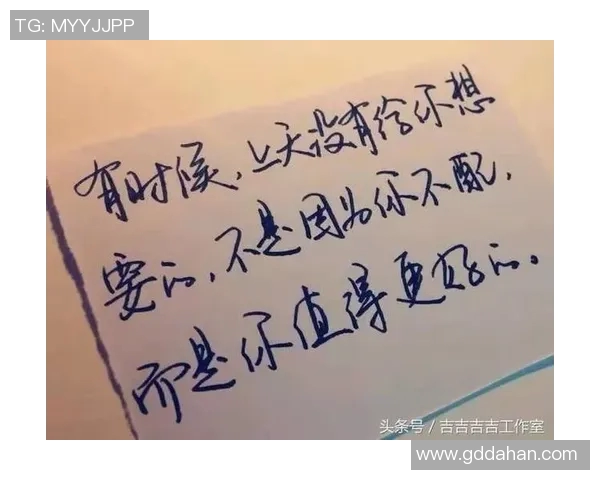 TG: MYYJJPP
有时候,上天没有给你想
要的,不是因为你不配,
而是你值得更好的。
头条号／吉吉吉吉工作室
www.gddahan.com